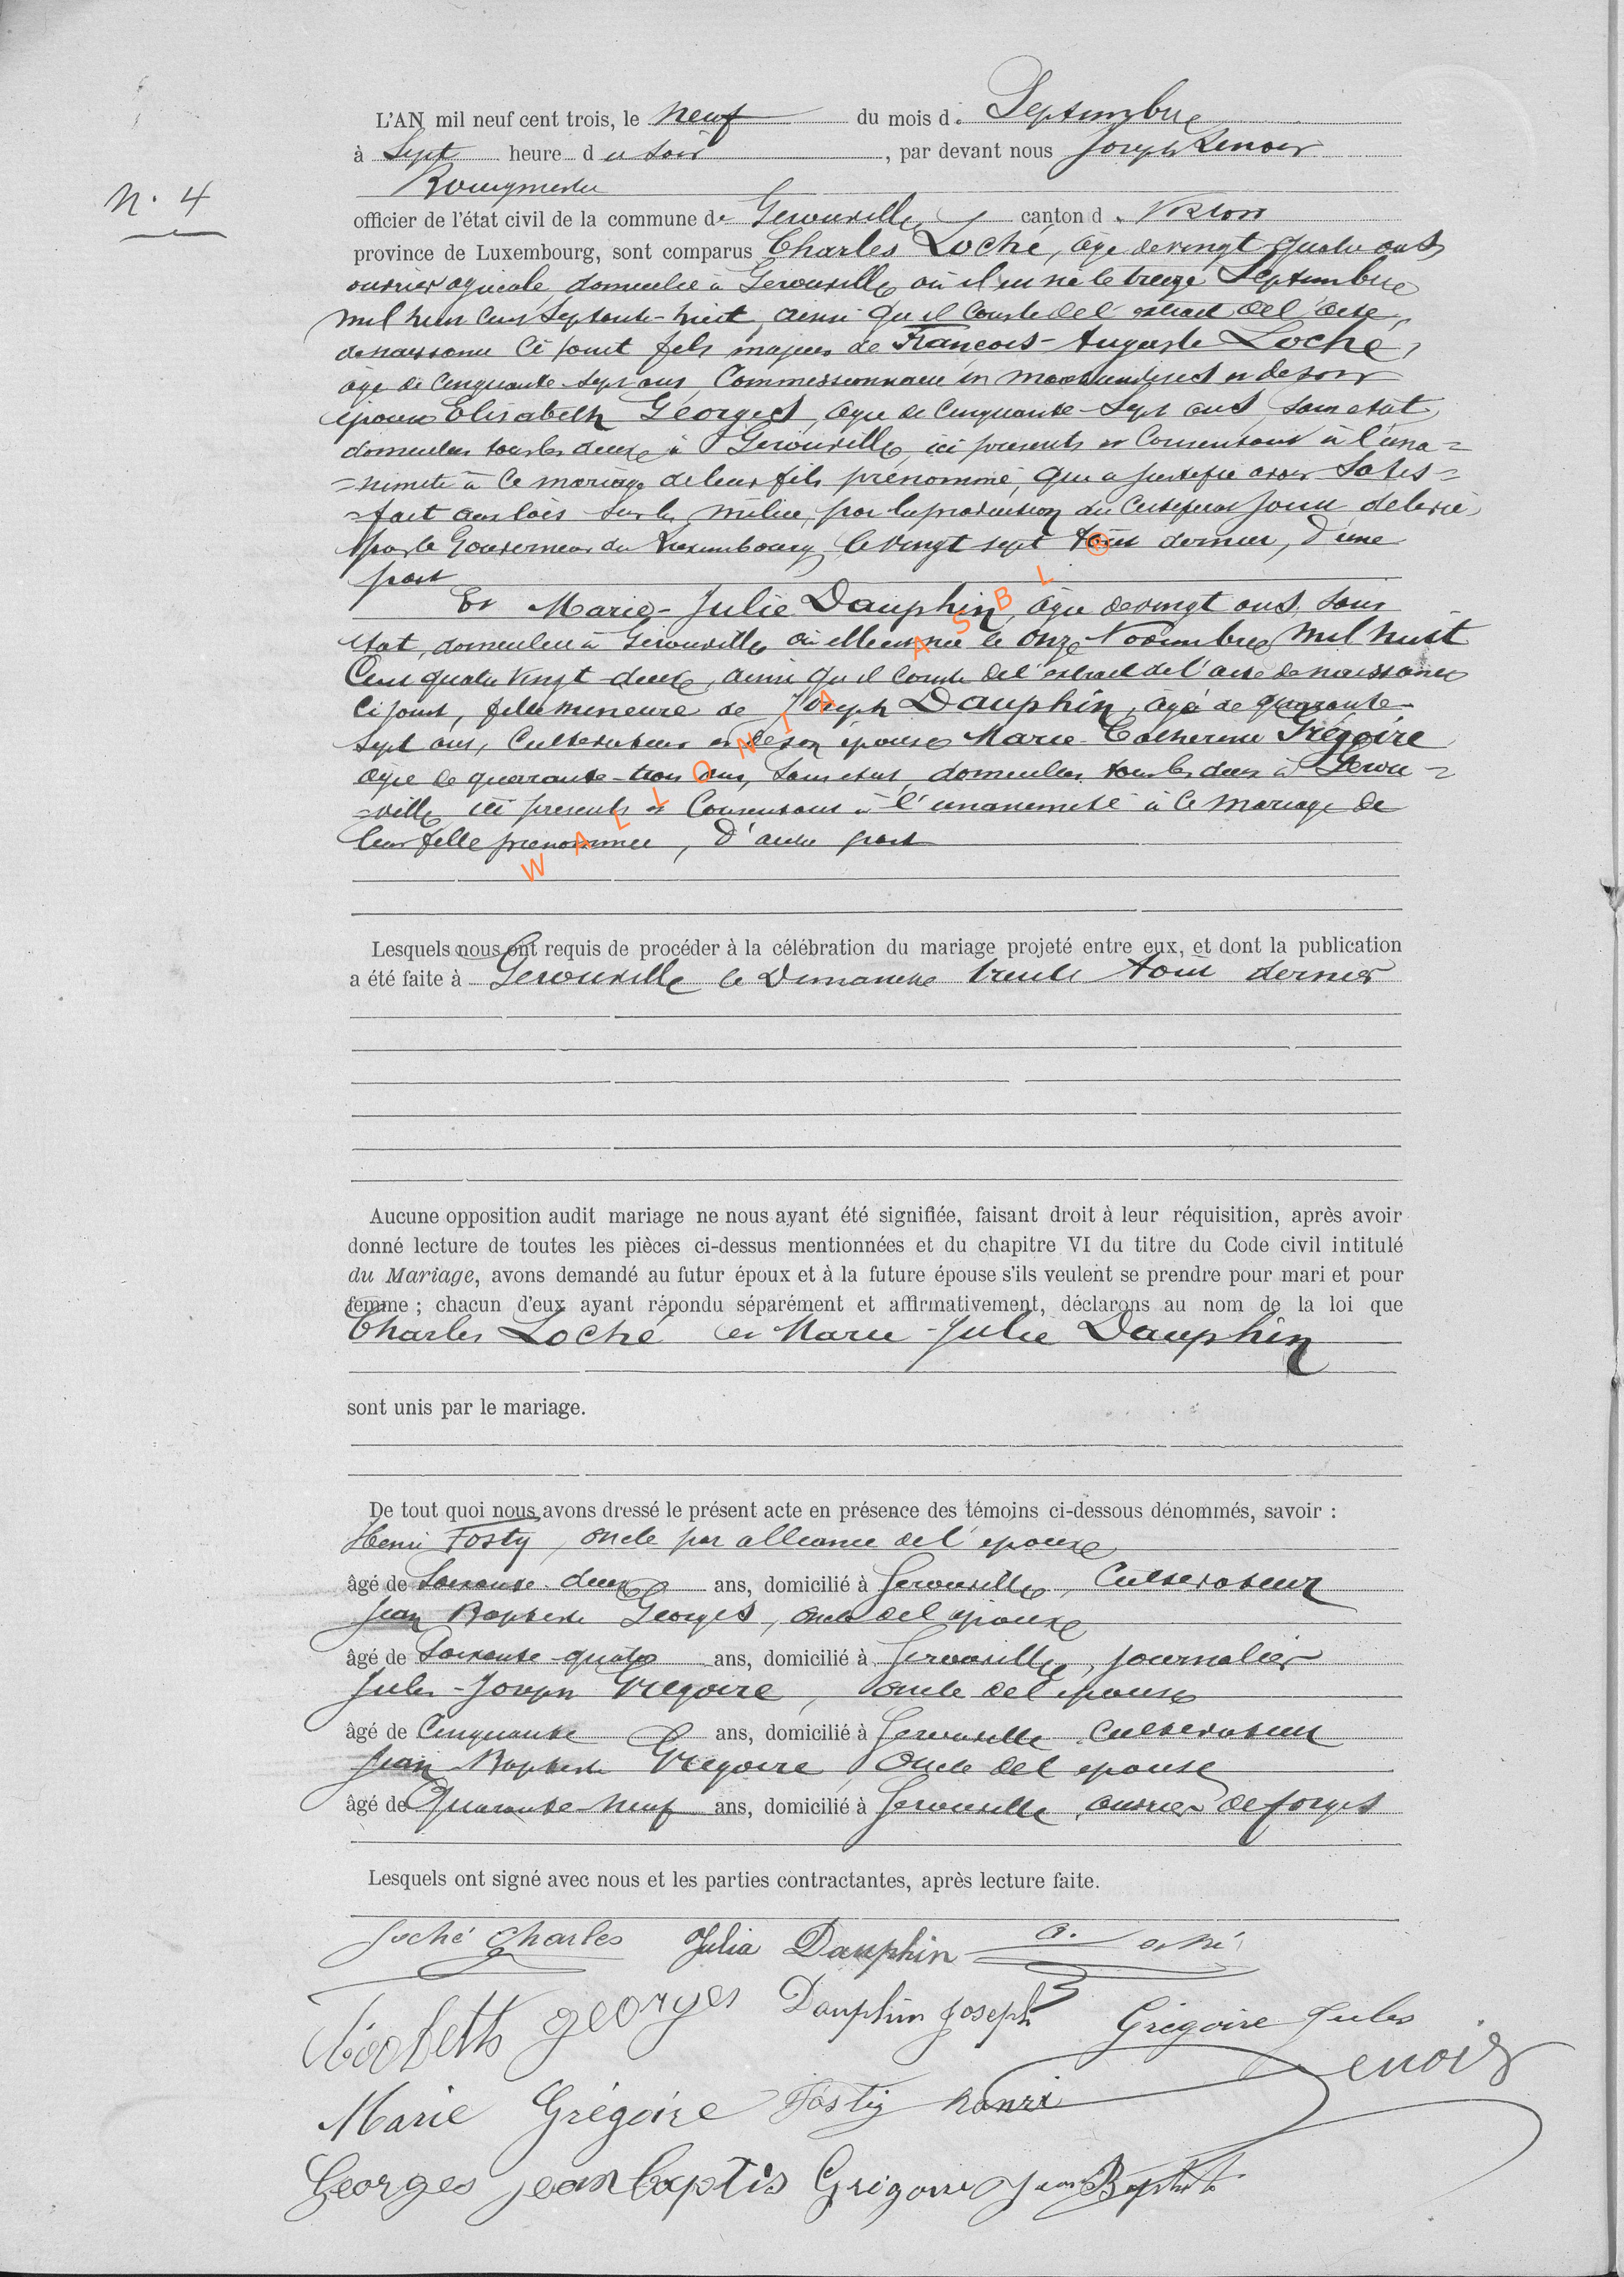 N. 4
L'AN mil neuf cent trois, le neuf du mois de Septembre
à Sept heure du soir, par devant nous Joseph Lenoir
Bourgmestre
officier de l'état civil de la commune de Gerouville canton de Virton
province de Luxembourg, sont comparus Charles Loché, âgé de vingt quatre ans,
ouvrier agricole, domicilié à Gerouville où il est né le treize Septembre
mil huit cent septante-huit, ainsi qu'il conste de l'extrait de l'acte
de naissance ci joint fils majeur de François-Auguste Loché,
âgé de cinquante-sept ans, Commissionnaire en marchandises et de son
épouse Elisabeth Georges, âgée de cinquante-sept ans, sans état,
domiciliés tous les deux à Gerouville, ici présents et consentant à l'una=
=nimité à ce mariage de leur fils prénommé, qui a justifié avoir satis=
=fait aux lois sur la milice, par la production du certificat joint, délivré
par le Gouverneur du Luxembourg, le vingt sept Août dernier, d'une
part
Et Marie-Julie Dauphin, âgée de vingt ans, sans
état, domiciliée à Gerouville où elle est née le onze Novembre mil huit
cent quatre vingt deux, ainsi qu'il conste de l'extrait de l'acte de naissance
ci joint, fille mineure de Joseph Dauphin, âgé de quarante-
sept ans, cultivateur et de son épouse Marie-Catherine Grégoire
âgée de quarante-trois ans, sans état, domiciliés tous les deux à Gerou=
=ville ici présents et consentant à l'unanimité à ce mariage de
leur fille prénommée, d'autre part
WALLONIA ASBL ®
Lesquels nous ont requis de procéder à la célébration du mariage projeté entre eux, et dont la publication
a été faite à Gerouville le Dimanche trente Août dernier
Aucune opposition audit mariage ne nous ayant été signifiée, faisant droit à leur réquisition, après avoir
donné lecture de toutes les pièces ci-dessus mentionnées et du chapitre VI du titre du Code civil intitulé
du Mariage, avons demandé au futur époux et à la future épouse s'ils veulent se prendre pour mari et pour
femme ; chacun d'eux ayant répondu séparément et affirmativement, déclarons au nom de la loi que
Charles Loché et Marie-Julie Dauphin
sont unis par le mariage.
De tout quoi nous avons dressé le présent acte en présence des témoins ci-dessous dénommés, savoir :
Henri Fosty, oncle par alliance de l'époux
âgé de soixante-deux ans, domicilié à Gerouville, Cultivateur
Jean Baptiste Georges, oncle de l'époux
âgé de soixante-quatre ans, domicilié à Gerouville, journalier
Jules-Joseph Grégoire, oncle de l'épouse
âgé de Cinquante ans, domicilié à Gerouville Cultivateur
Jean Baptiste Grégoire, oncle de l'épouse
âgé de Quarante-neuf ans, domicilié à Gerouville, ouvrier de forges
Lesquels ont signé avec nous et les parties contractantes, après lecture faite.
Loché Charles Julia Dauphin A. Loché
Elisabeth georges Dauphin Joseph Grégoire Jules
Lenoir
Marie Grégoire Fosty Henri
Georges jean baptis Grégoire Jean Baptiste